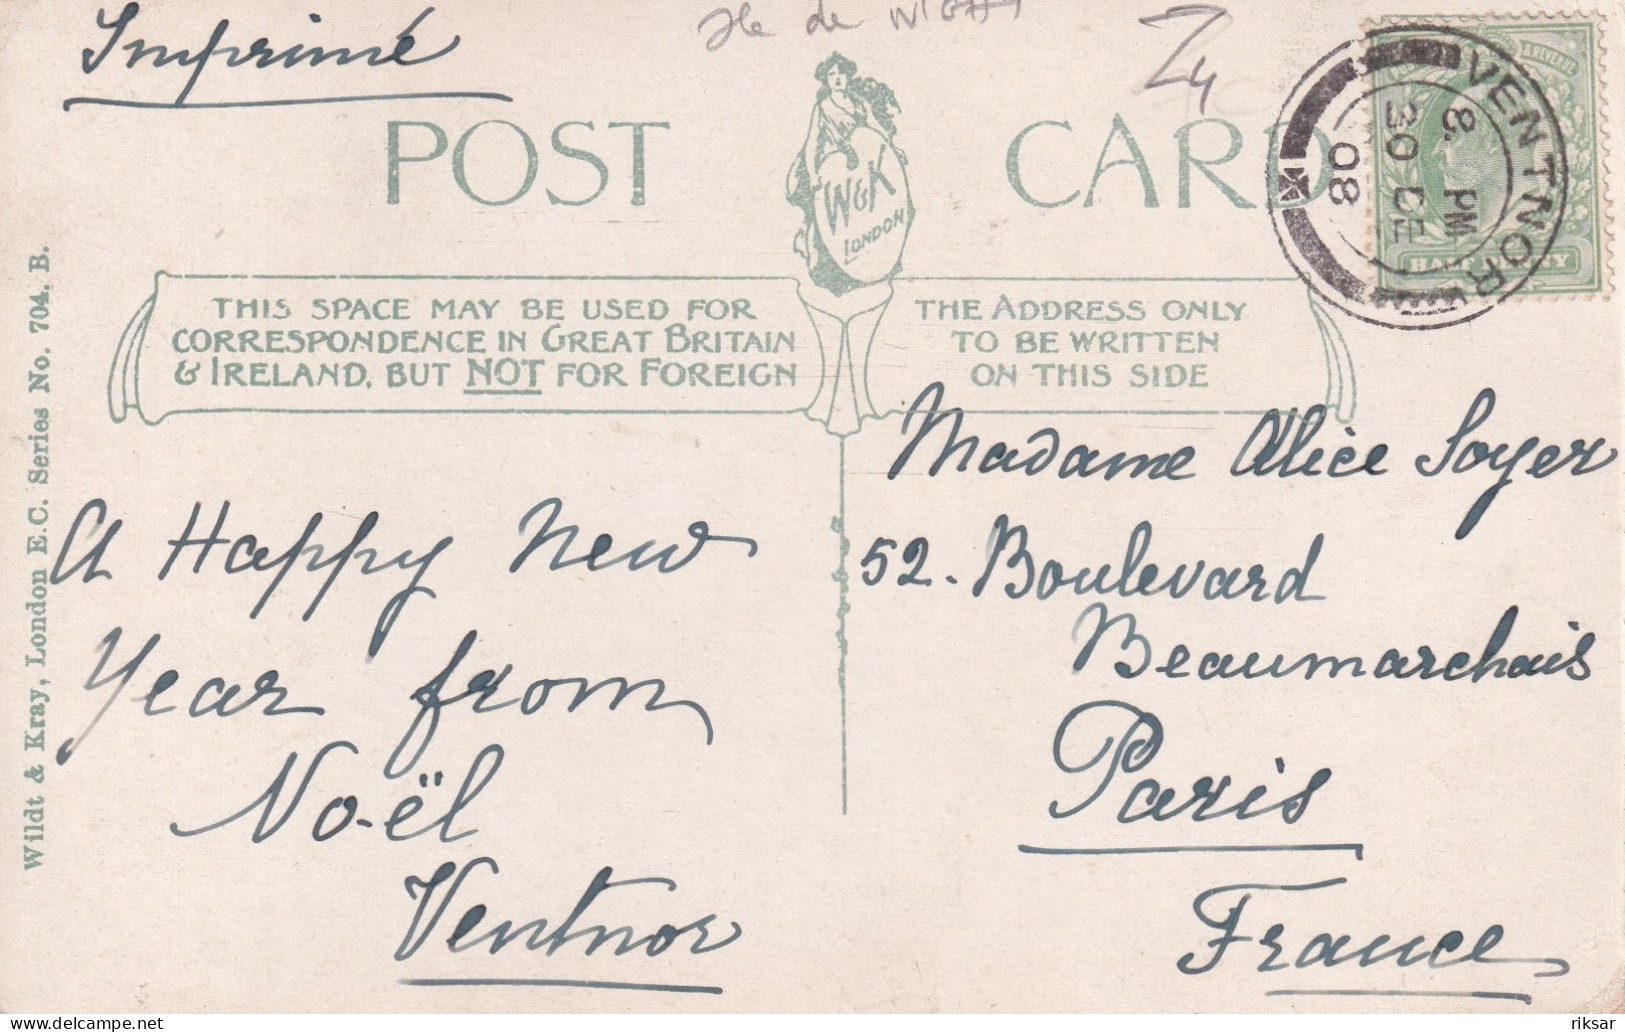 Imprimé
Ile de WIGHT
POST CARD
W&K
LONDON
VENTNOR
8. PM
30 DE
08
HALF PENNY
THIS SPACE MAY BE USED FOR
CORRESPONDENCE IN GREAT BRITAIN
& IRELAND, BUT NOT FOR FOREIGN
THE ADDRESS ONLY
TO BE WRITTEN
ON THIS SIDE
Wildt & Kray, London E.C. Series No. 704, B.
A Happy New
Year from
No-ël
Ventnor
Madame Alice Soyer
52. Boulevard
Beaumarchais
Paris
France
riksar